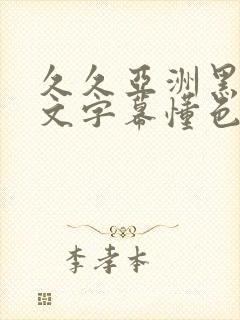 久久亞洲黑
文字幕懂色
李孝本